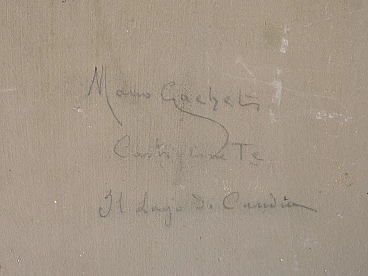 Mario Gachet
Castiglione Te
Il Lago di Candia